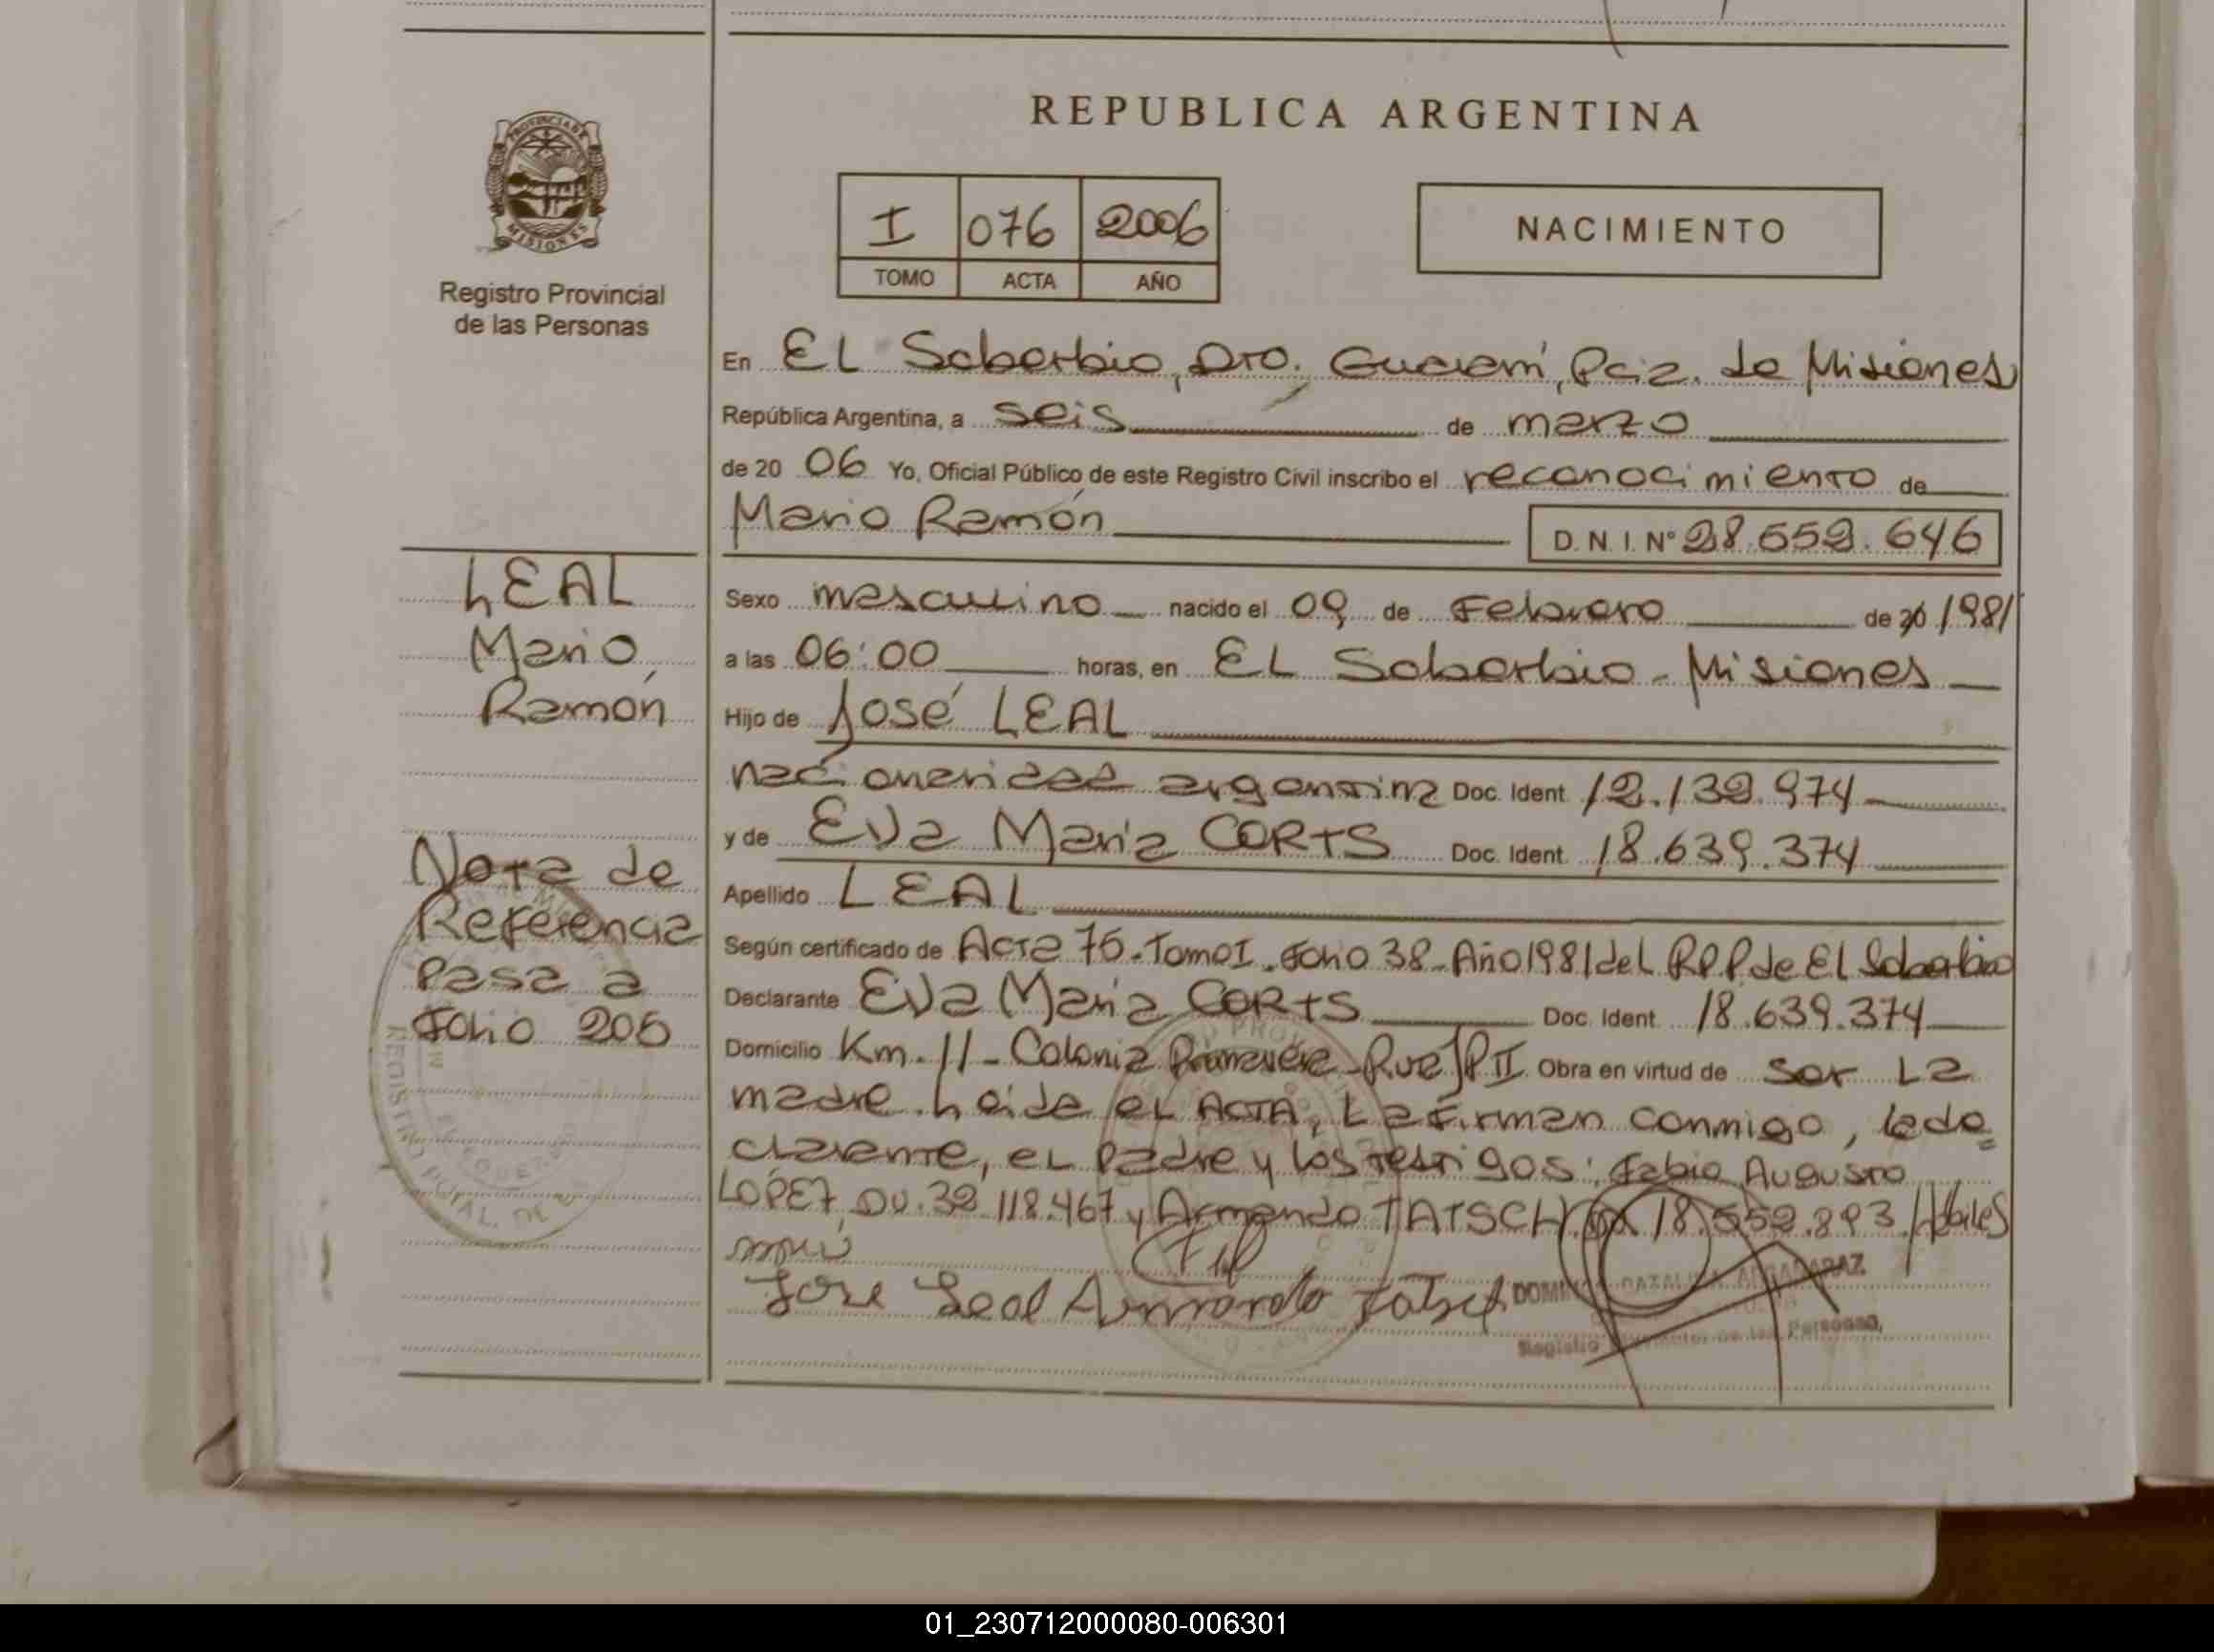 REPUBLICA ARGENTINA
PROVINCIA DE
MISIONES
Registro Provincial
de las Personas
I 076 2006
TOMO ACTA AÑO
NACIMIENTO
En EL Soberbio, Dto. Guaraní, Pcia. de Misiones
República Argentina, a seis de marzo
de 20 06 Yo, Oficial Público de este Registro Civil inscribo el reconocimiento de
Mario Ramón D.N.I. Nº 28.552.646
LEAL
Mario
Ramón
Sexo masculino nacido el 09 de Febrero de 20 1981
a las 06:00 horas, en EL Soberbio - Misiones
Hijo de José LEAL
nacionalidad argentina Doc. Ident. 12.132.974
y de Eva María CORTS Doc. Ident. 18.639.374
Apellido LEAL
Nota de
Referencia
Pasa a
Folio 205
Según certificado de Acta 75 - Tomo I - Folio 38 - Año 1981 del R.P.P. de El Soberbio
Declarante Eva María CORTS Doc. Ident. 18.639.374
Domicilio Km. 11 - Colonia Primavera - Obra en virtud de ser La
madre. Leida el ACTA, La Firman conmigo, la de
clarante, el padre y los testigos: Fabio Augusto
LOPEZ, DU. 32.118.467 y Armando TATSCH 18.552.893. Hábiles
Jose Leal Armando Tatsch
Registro Provincial de las Personas
01_230712000080-006301